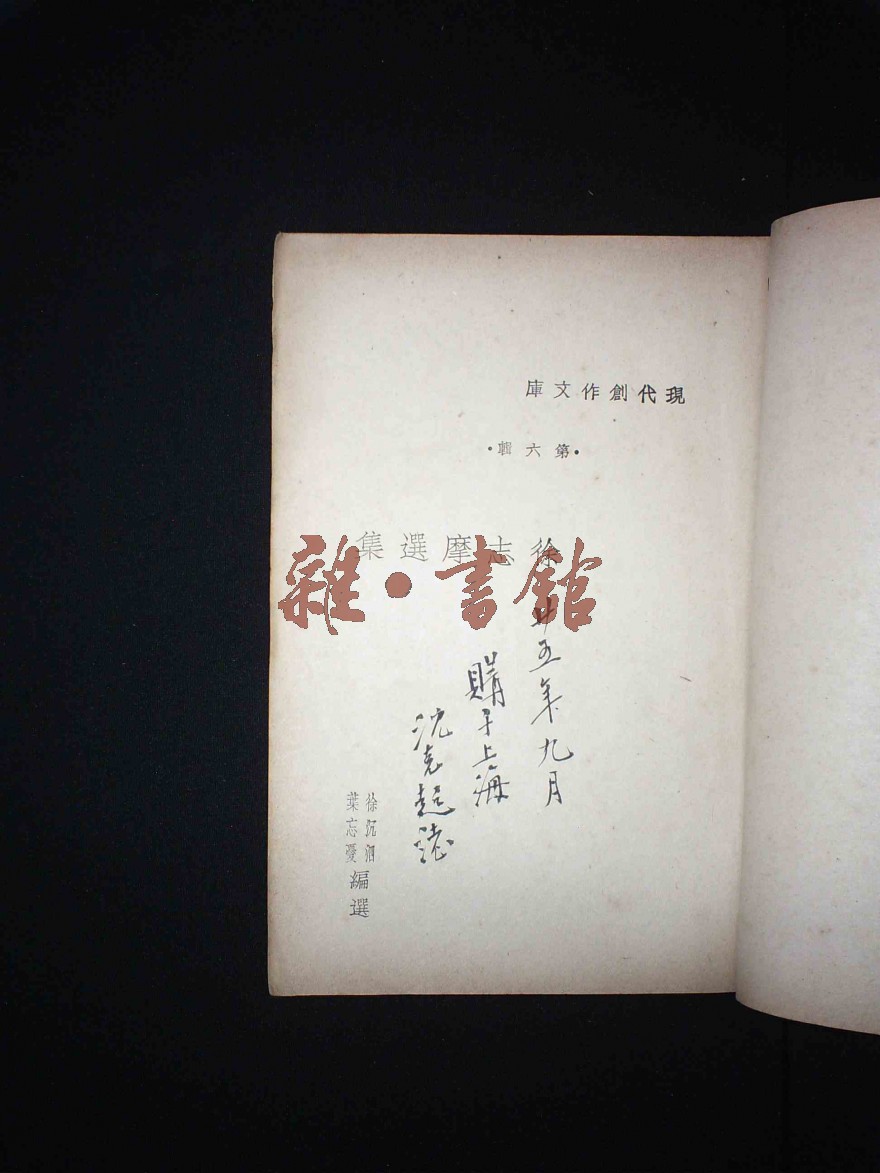 現代創作文庫
•第六輯•
徐志摩選集
雜•書館
廿五年九月
購于上海
沈克超誌
徐沉泗
葉忘憂
編選